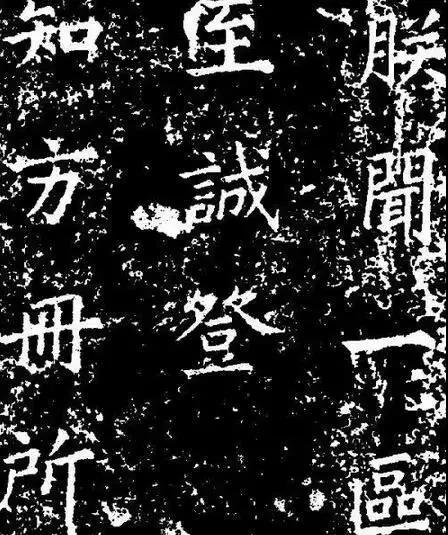 朕聞一區
至誠登
知方冊所